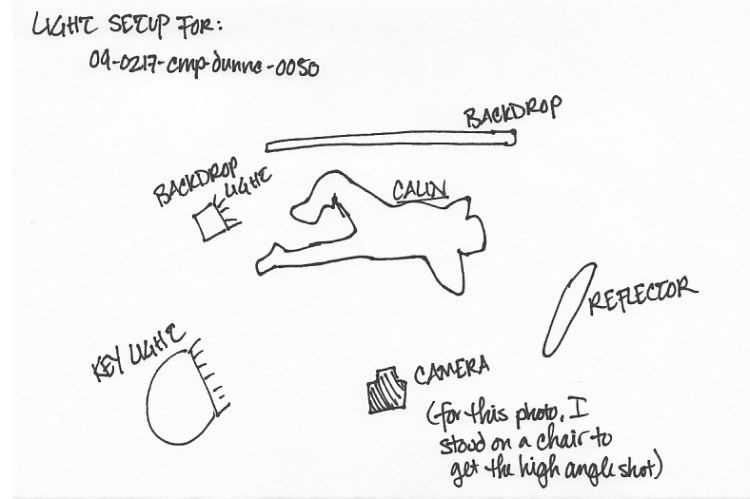 LIGHT SETUP FOR:
09-0217-cmp-dunne-0050
BACKDROP
BACKDROP
LIGHT
CALIN
REFLECTOR
KEY LIGHT
CAMERA
(for this photo, I
stood on a chair to
get the high angle shot)